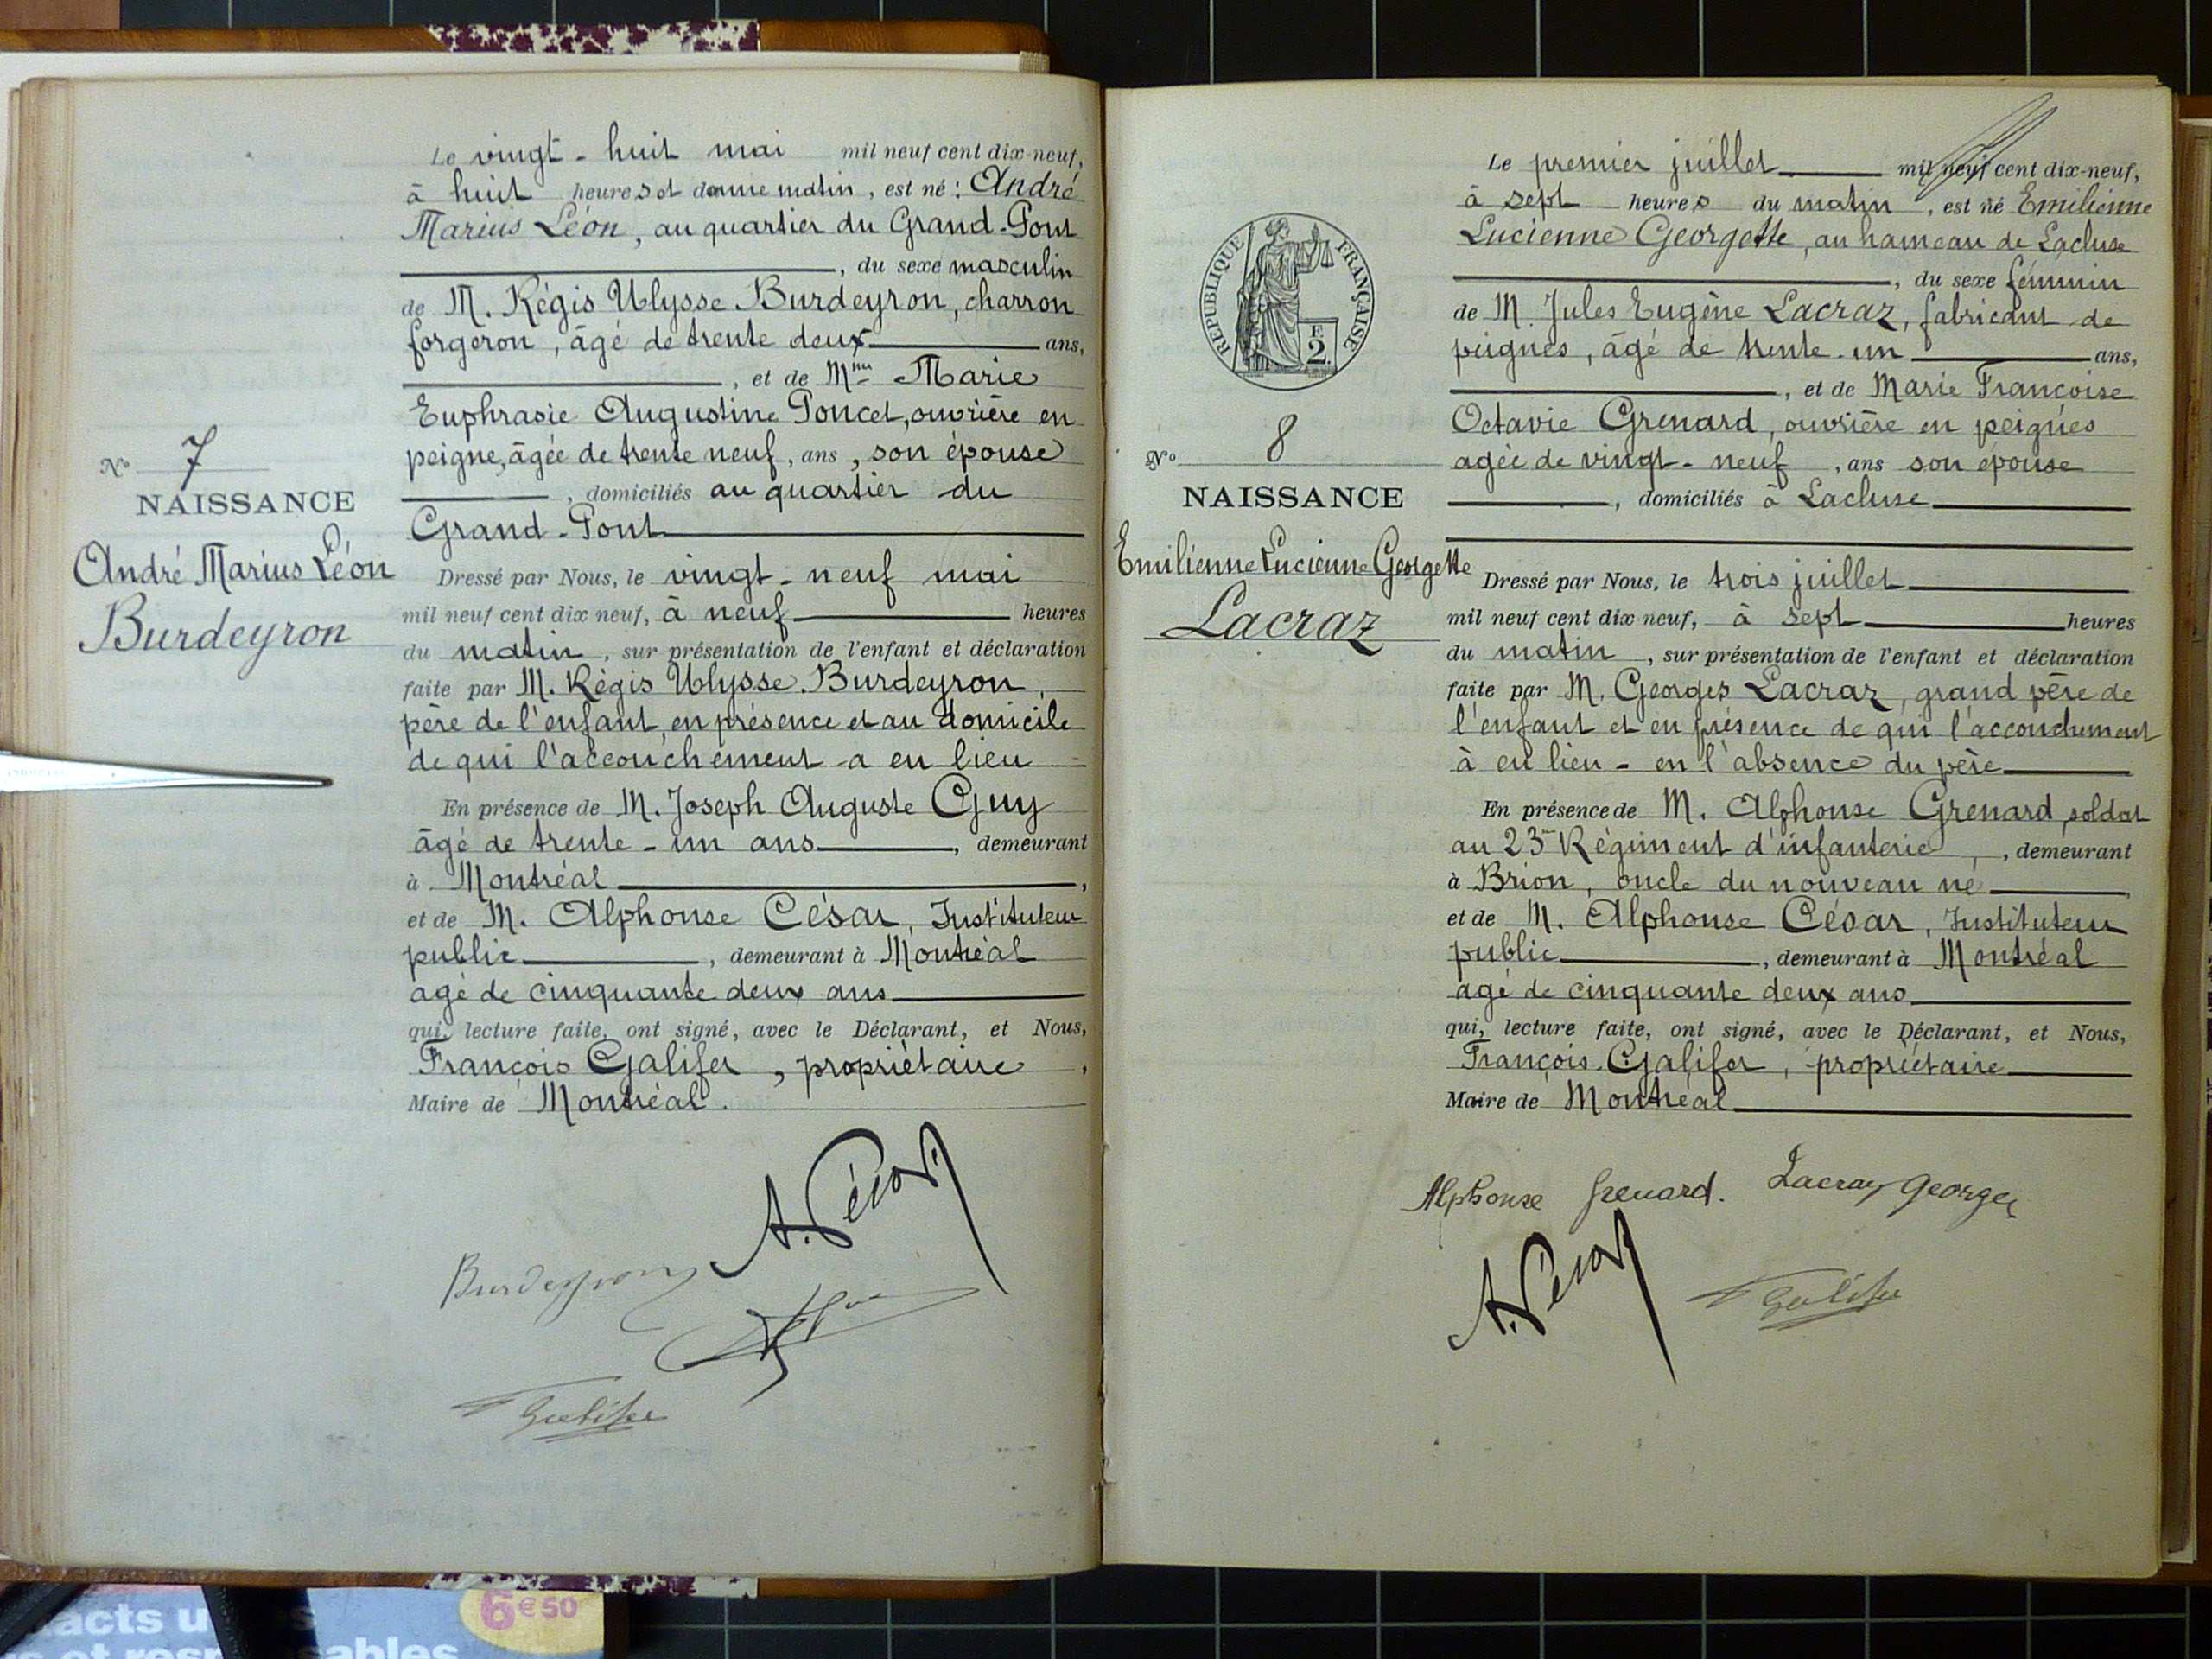 Le vingt-huit mai mil neuf cent dix-neuf,
à huit heures et demie matin, est né: André
Marius Léon, au quartier du Grand-Pont
, du sexe masculin
de M. Régis Ulysse Burdeyron, charron
forgeron, âgé de trente deux ans,
, et de Mme Marie
Euphrasie Augustine Poncet, ouvrière en
peigne, âgée de trente neuf, ans, son épouse
, domiciliés au quartier du
Grand-Pont
No 7
NAISSANCE
André Marius Léon
Burdeyron
Dressé par Nous, le vingt-neuf mai
mil neuf cent dix neuf, à neuf heures
du matin, sur présentation de l'enfant et déclaration
faite par M. Régis Ulysse Burdeyron,
père de l'enfant, en présence et au domicile
de qui l'accouchement a eu lieu
En présence de M. Joseph Auguste Guy
âgé de trente-un ans, demeurant
à Montréal,
et de M. Alphonse César, Instituteur
public, demeurant à Montréal
agé de cinquante deux ans
qui, lecture faite, ont signé, avec le Déclarant, et Nous,
François Galifer, propriétaire,
Maire de Montréal.
A. César
Burdeyron
Galifer
Le premier juillet mil neuf cent dix-neuf,
à sept heures du matin, est né Emilienne
Lucienne Georgette, au hameau de Lacluse
, du sexe féminin
de M. Jules Eugène Lacraz, fabricant de
peignes, âgé de trente-un ans,
, et de Marie Françoise
Octavie Grenard, ouvrière en peignes
agée de vingt-neuf, ans son épouse
, domiciliés à Lacluse
REPUBLIQUE FRANÇAISE
E
2.
No 8
NAISSANCE
Emilienne Lucienne Georgette
Lacraz
Dressé par Nous, le trois juillet
mil neuf cent dix neuf, à sept heures
du matin, sur présentation de l'enfant et déclaration
faite par M. Georges Lacraz, grand père de
l'enfant et en présence de qui l'accouchement
à eu lieu - en l'absence du père
En présence de M. Alphonse Grenard, soldat
au 23me Régiment d'infanterie, demeurant
à Brion, oncle du nouveau né
et de M. Alphonse César, Instituteur
public, demeurant à Montréal
agé de cinquante deux ans
qui, lecture faite, ont signé, avec le Déclarant, et Nous,
François Galifer, propriétaire
Maire de Montréal
Alphonse Grenard. Lacraz Georges
A. César
Galifer
6€50